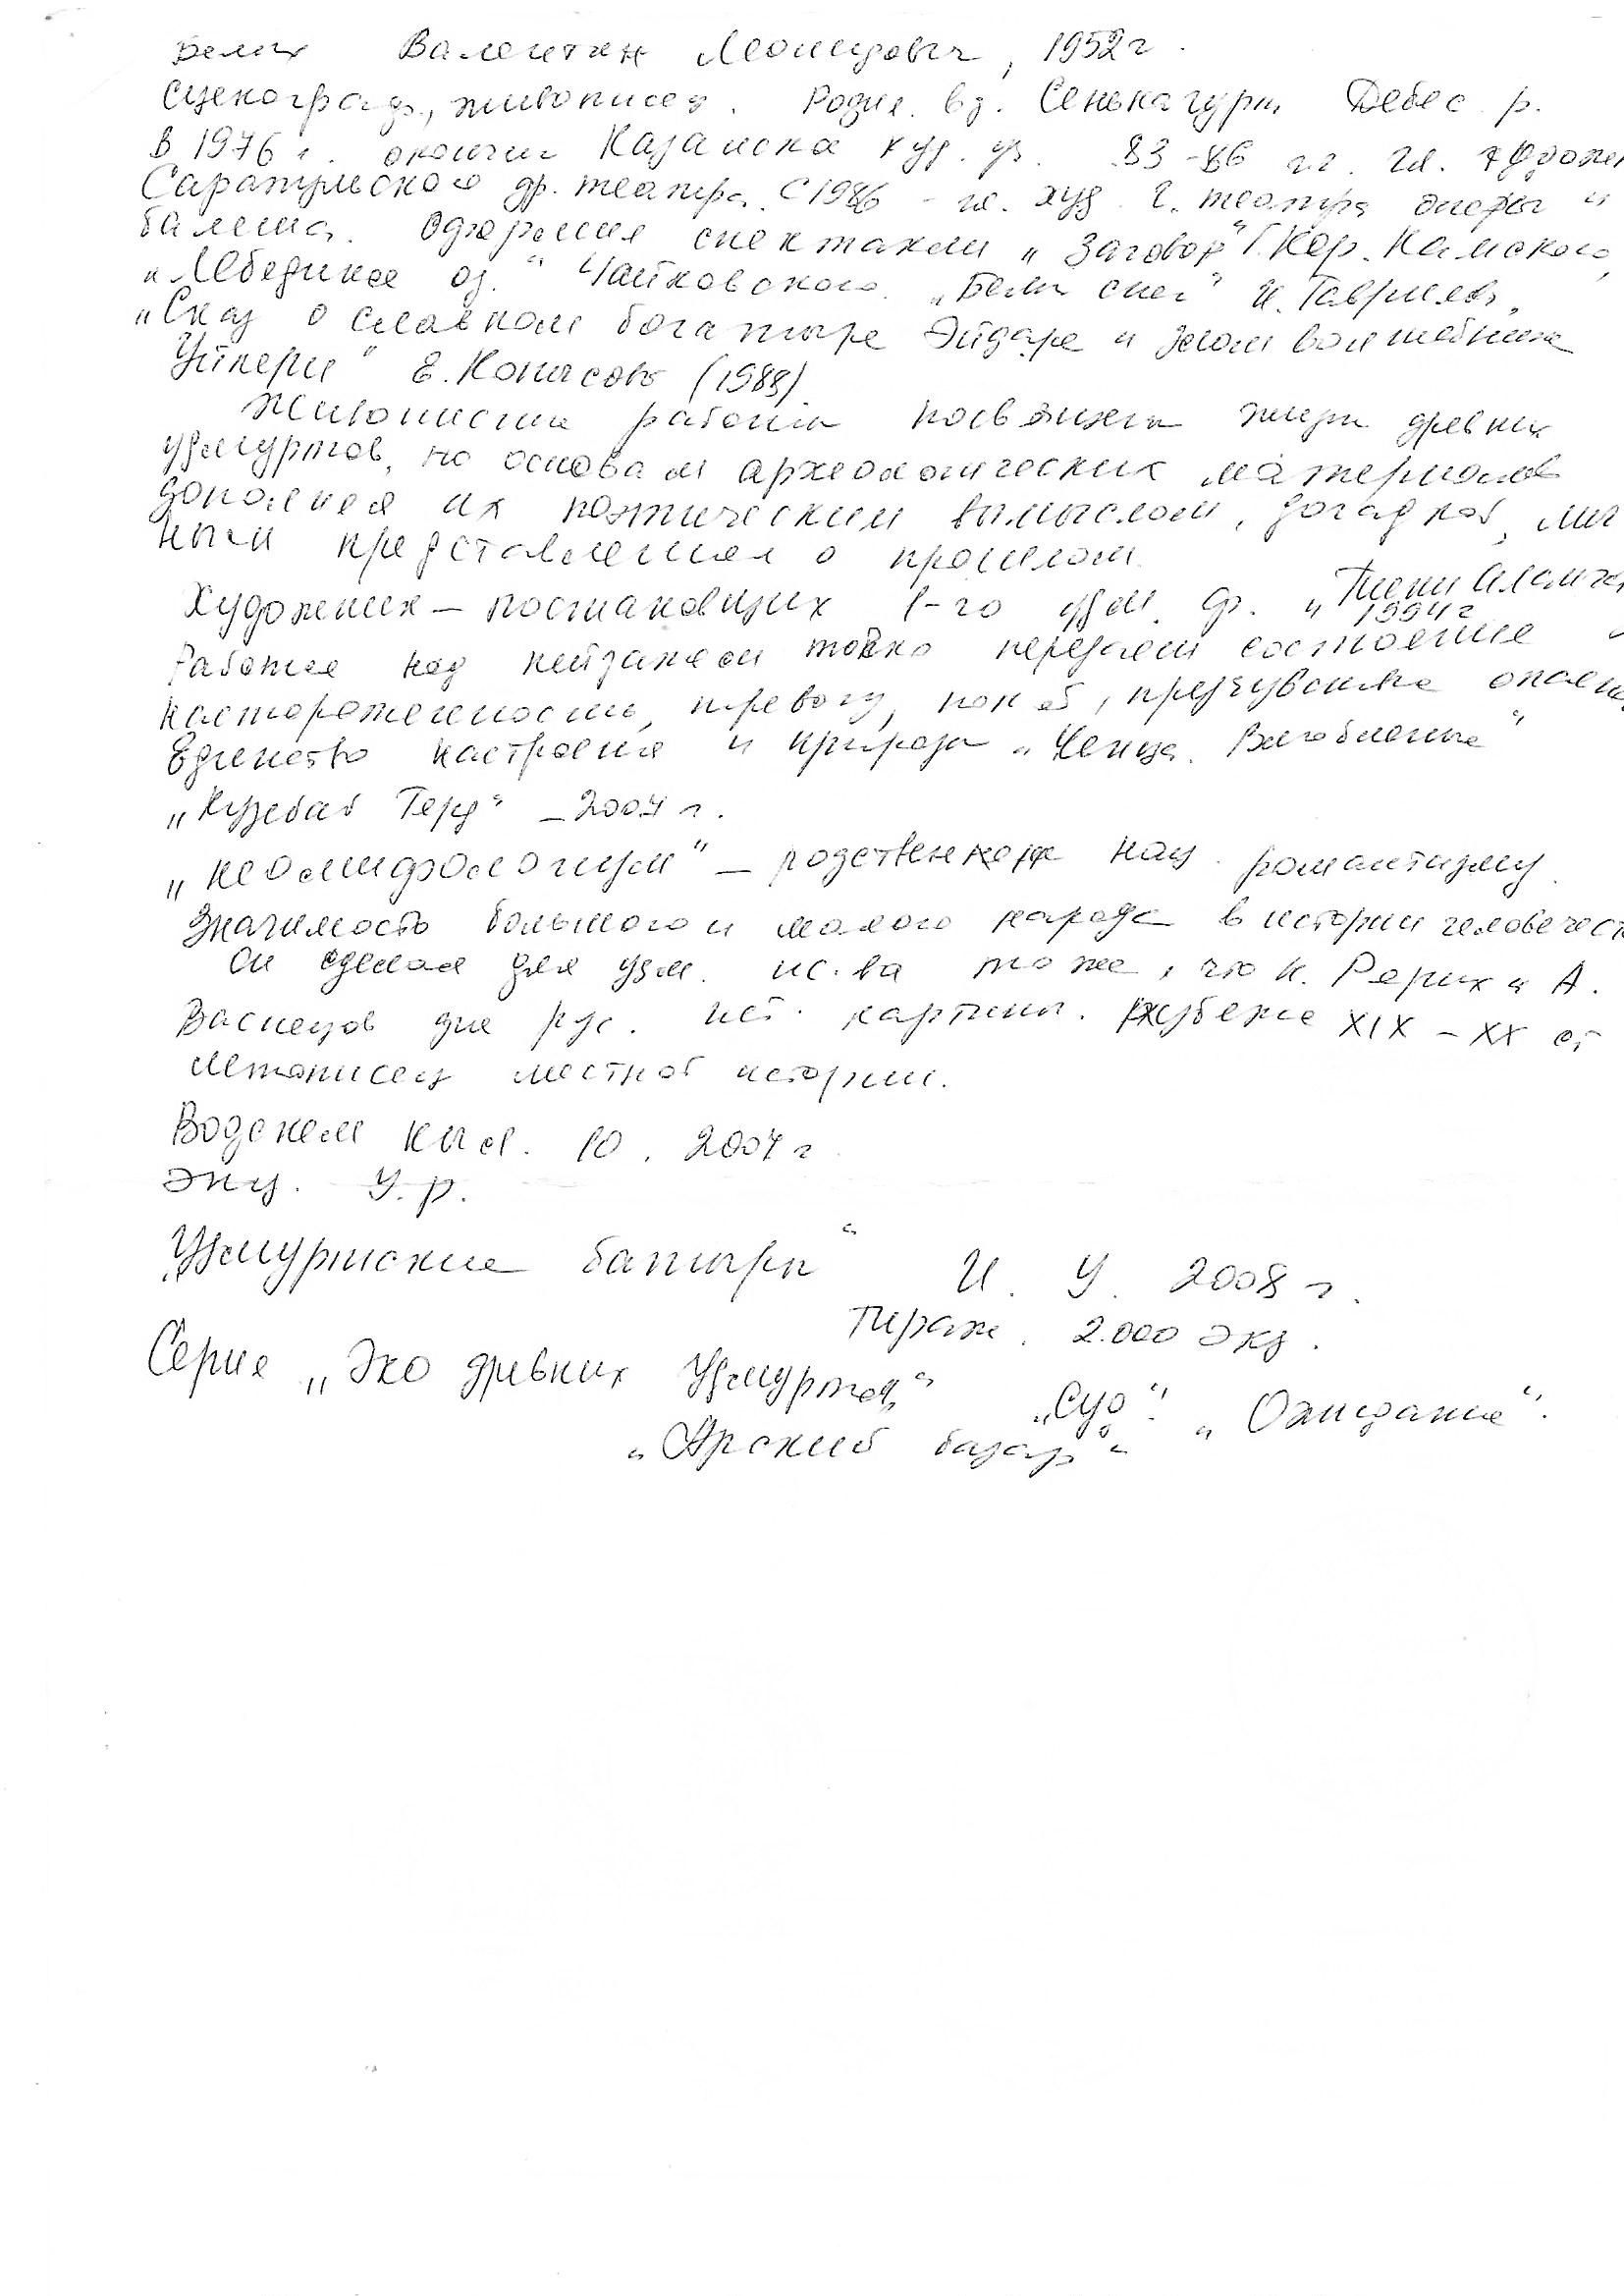 Белых Валентин Леонидович, 1952 г.
Сценограф, живописец. Родил. в д. Сенькагурт Дебес. р.
В 1976 г. окончил Казанское худ. уч. 83-86 г.г. гл. художн
Сарапульского др. театра. С 1986 - гл. худ. г. театра оперы и
балета. Оформил спектакли „Заговор" Г. Кор. Камского,
„Лебединое оз." Чайковского. „Белый снег" И. Гаврилов,
„Сказ о славном богатыре Эйдаре и злом волшебнике
Уйпери" Е. Копысова (1988)
Живописные работы посвящены жизни древних
удмуртов, на основании археологических материалов
дополняя их поэтическим вымыслом, догадкой, лич
ными представлениям о прошлом.
Художник – постановщик 1-го удм. ф. „Тени Алангасара
1994 г
Работая над пейзажем тонко передает состояние
настороженности, тревогу, покой, предчувствие опасн
Единство настроения и природы „Чепца. Вдохновение"
„Кузебай Герд" – 2007 г.
„неомифологизм" – родственное нац. романтизму.
Значимость большого и малого народа в истории человечест
Он сделал для удм. ис-ва то же, что Н. Рерих и А.
Васнецов для рус. ист. картины. рубеже XIX – XX ст
Летописец местной истории.
Водскем кыл. 10. 2007 г
Энц. У. р.
„Удмуртские батыры" И. У. 2008 г.
Тираж. 2.000 экз.
Серия „Эхо древних Удмуртов" „Суд". „Ожидание".
„Арский базар"